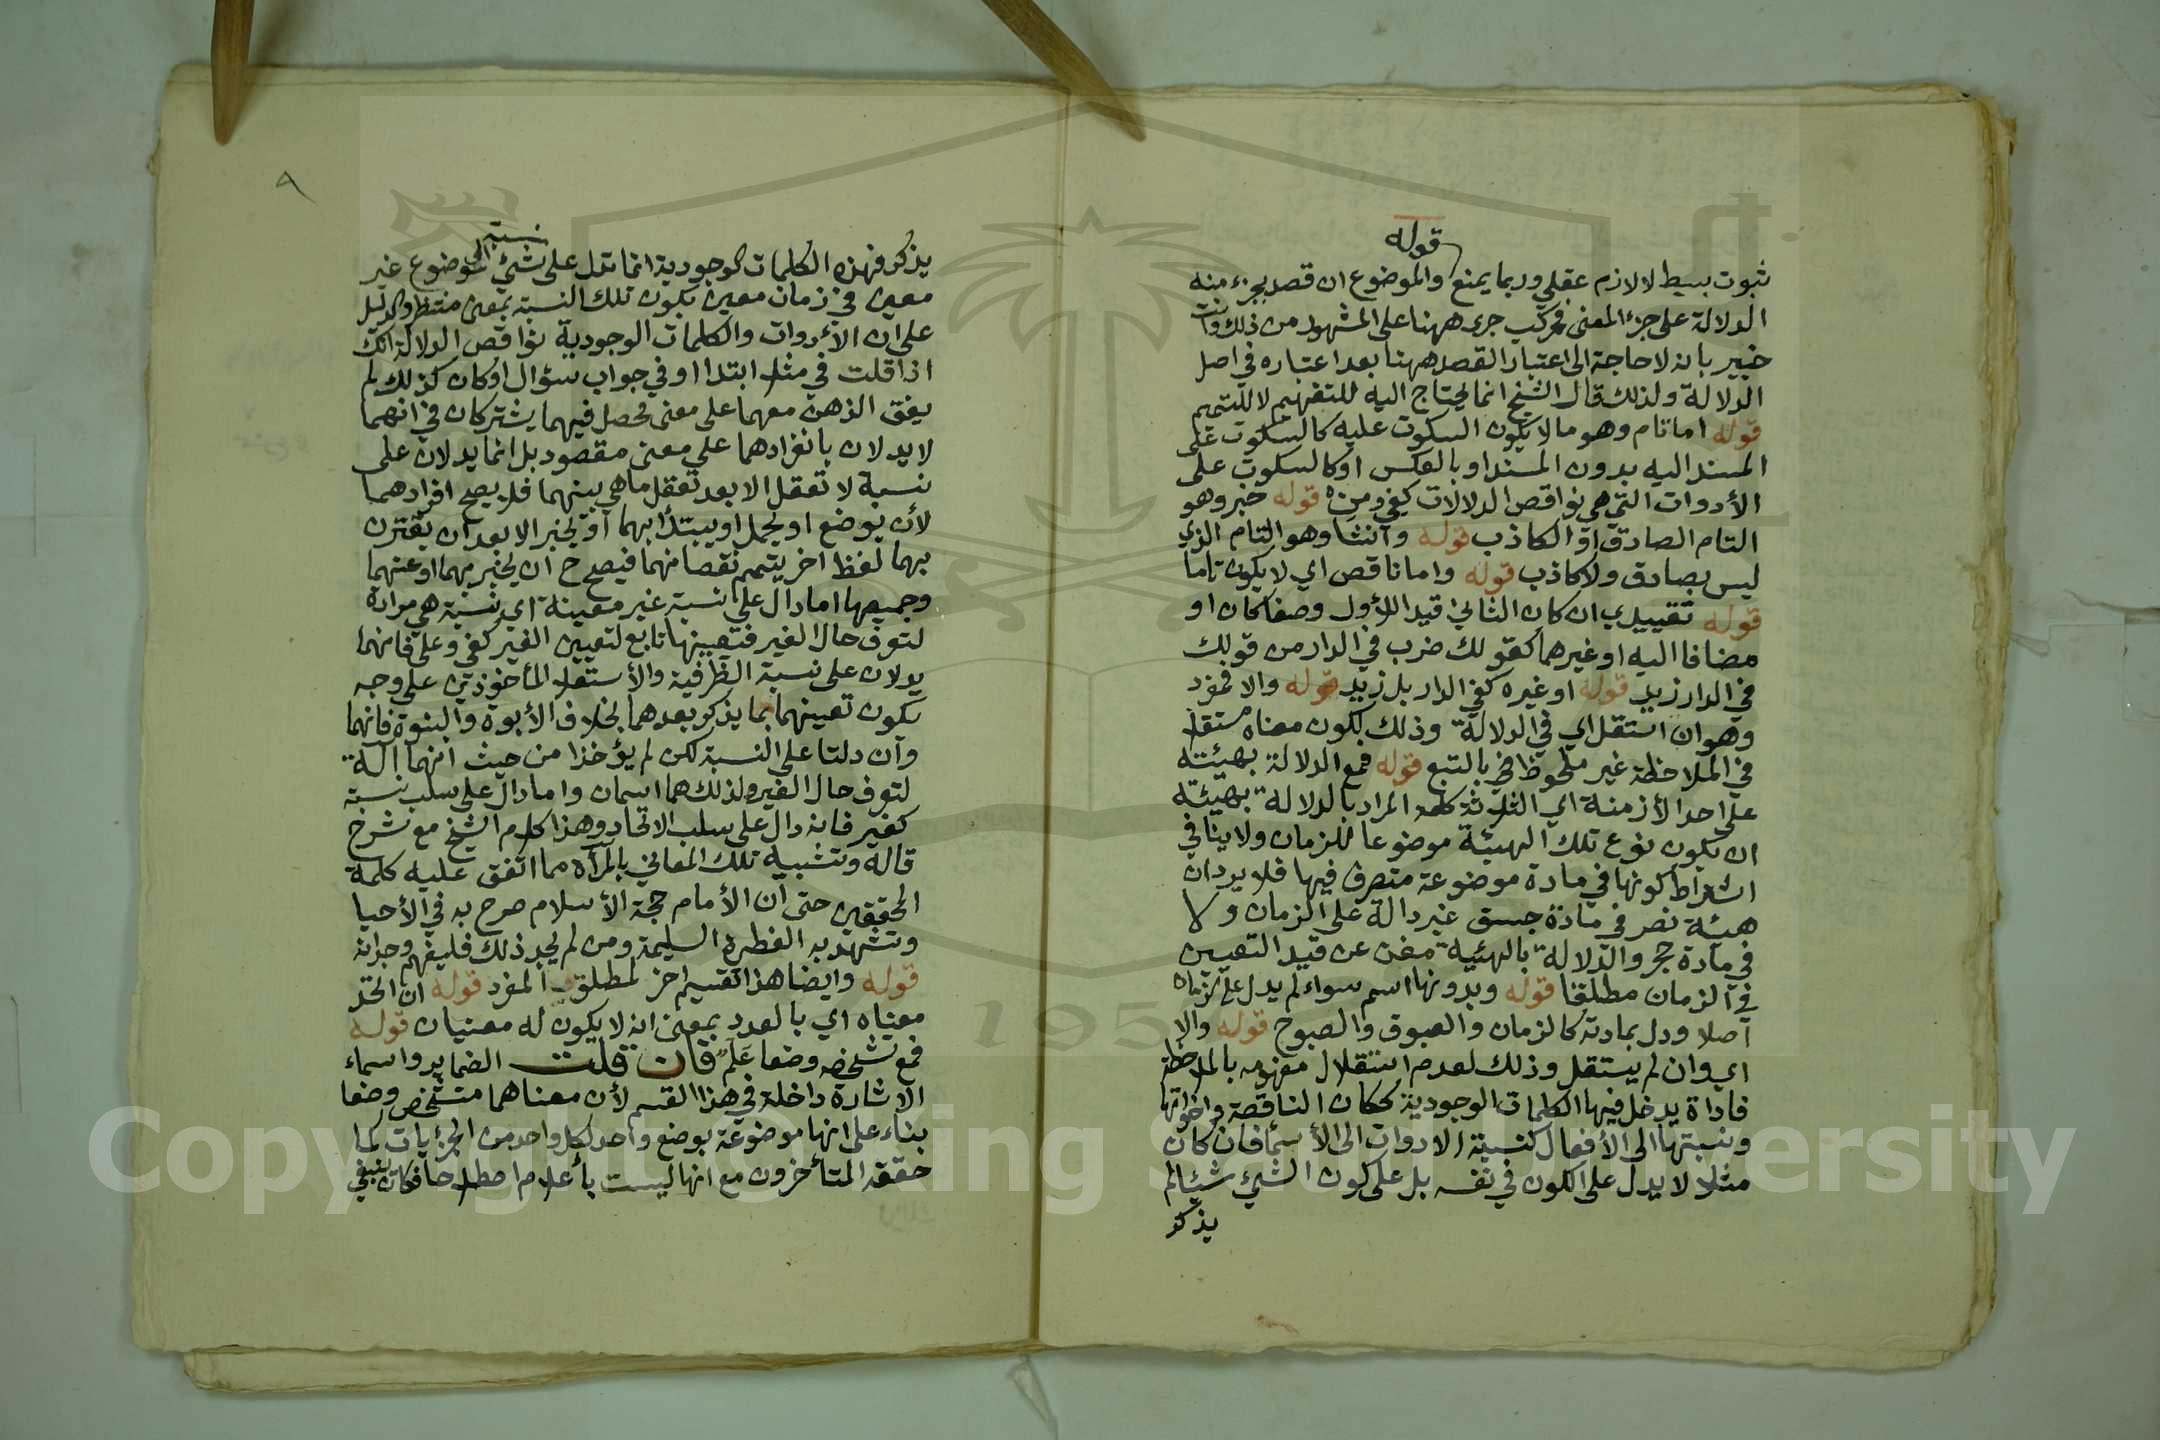 قوله
ثبوت بسيط لا لازم عقلي وربما يمنع والموضوع ان قصد بجزء منه
الدلالة على جزء المعنى فمركب جرى ههنا على المشهور من ذلك وانت
خبير بانه لا حاجة الى اعتبار القصد ههنا بعد اعتباره في اصل
الدلالة ولذلك قال الشيخ انما يحتاج اليه للتفهيم لا للتتميم
قوله اما تام وهو ما لا يكون السكوت عليه كالسكوت على
المسند اليه بدون المسند او بالعكس او كالسكوت على
الأدوات التي هي نواقص الدلالات كفي ومن قوله خبر وهو
التام الصادق او الكاذب قوله وانشا وهو التام الذي
ليس بصادق ولا كاذب قوله واما ناقص اي لا يكون تاما
قوله تقييدي ان كان الثاني قيد اللأول وصفا كان او
مضافا اليه او غيرهما كقولك ضرب في الدار من قولك
في الدار زيد قوله او غيره كفي الدار بل زيد قوله والا فمفرد
وهو ان استقل اي في الدلالة وذلك بكون معناه مستقلا
في الملاحظة غير ملحوظ بالتبع قوله فمع الدلالة بهيئته
على احد الأزمنة اي الثلاثة كلمة المراد بالدلالة بهيئته
ان يكون نوع تلك الهيئة موضوعا للزمان ولا ينافي
اشتراط كونها في مادة موضوعة متصرف فيها فلا يرد ان
هيئة نصر في مادة جسق غير دالة على الزمان ولا
في مادة حجر والدلالة بالهيئية مغن عن قيد التعيين
في الزمان مطلقا قوله وبدونها اسم سواء لم يدل على زمان
أصلا ودل بمادته كالزمان والغبوق والصبوح قوله والا
اي وان لم يستقل وذلك لعدم استقلال مفهومه بالملاحظة
فاداة يدخل فيها الكلمات الوجودية ككان الناقصة واخواتها
ونسبتها الى الأفعال كنسبة الادوات الى الأسماء فان كان
مثلا لا يدل على الكون في نفسه بل على كون الشيء شيئا لم
يذكر
٨
نسبة
يذكر فهذه الكلمات الوجودية انما تدل على شيء الى موضوع غير
معين في زمان معين بكون تلك النسبة بمعنى منتظر والدليل
على ان الأدوات والكلمات الوجودية نواقص الدلالة انك
اذا قلت في مثلا ابتدا او في جواب سؤال او كان كذلك لم
يقف الذهن معهما على معنى محصل فيهما يشتركان في انهما
لا يدلان بانفرادهما على معنى مقصود بل انما يدلان على
نسبة لا تعقل الا بعد تعقل ما هي بينهما فلا يصح افرادهما
لأن يوضع او يحمل او يبتدأ بهما او يخبر الا بعد ان يقترن
بهما لفظ اخر يتمم نقصانهما فيصح ح ان يخبر بهما او عنهما
وجميعها اما دال على نسبة غير معينة اي نسبة هي مرآة
لتعرف حال الغير فتعينها تابع لتعيين الغير كفي وعلى فانهما
يدلان على نسبة الظرفية والأستعلاء المأخوذين على وجه
يكون تعينهما بما يذكر بعدهما بخلاف الأبوة والبنوة فانهما
وان دلتا على النسبة لكن لم يؤخذا من حيث انهما آلة
لتعرف حال الغير ولذلك هما اسمان واما دال على سلب نسبة
كغير فانه دال على سلب الاتحاد وهذا كلام الشيخ مع شرح
قاله وتشبيه تلك المعاني بالمرآة مما اتفق عليه كلمة
المحققين حتى ان الأمام حجة الأسلام صرح به في الأحيا
وتشهد به الفطرة السليمة ومن لم يجد ذلك فليفهم وجدانه
قوله وايضا هذا تقسيم اخر لمطلق المفرد قوله ان اتحد
معناه اي بالعدد بمعنى انه لا يكون له معنيان قوله
فمع تشخصه وضعا علم فان قلت الضماير واسماء
الاشارة داخلة في هذا القسم لأن معناهما متشخص وضعا
بناء على انها موضوعة بوضع واحد لكل واحد من الجزئيات كما
حققه المتأخرون مع انها ليست بأعلام اصطلاحا فكان ينبغي
Copyright © King Saud University
1957